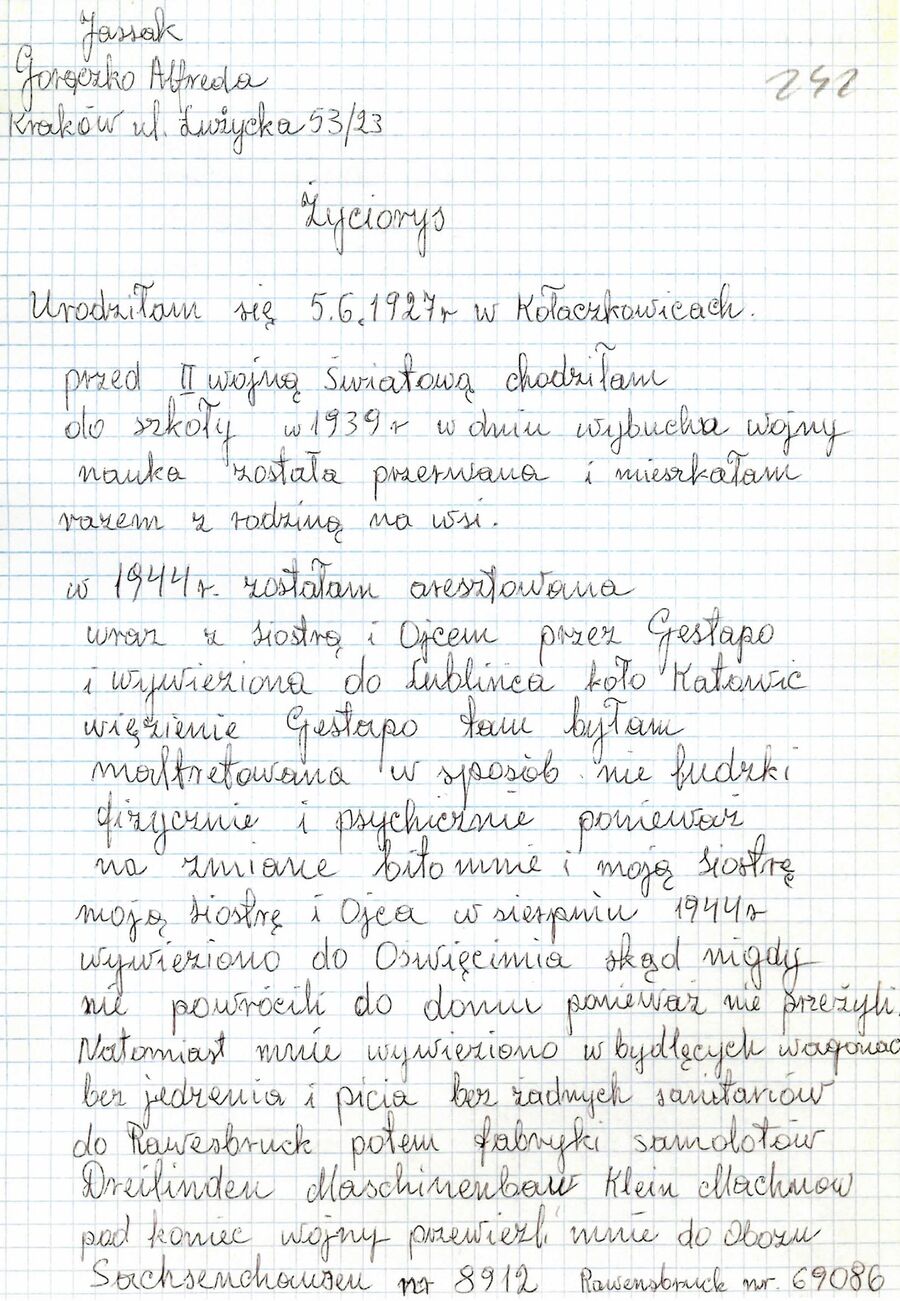 Jassak
Gorączko Alfreda
242
Kraków ul. Łużycka 53/23
Życiorys
Urodziłam się 5.6.1927r w Kołaczkowicach.
przed II wojną światową chodziłam
do szkoły w 1939r w dniu wybucha wojny
nauka została przerwana i mieszkałam
razem z rodziną na wsi.
w 1944r. zostałam aresztowana
wraz z siostrą i Ojcem przez Gestapo
i wywieziona do Lublińca koło Katowic
więzienie Gestapo tam byłam
maltretowana w sposób nie ludzki
fizycznie i psychicznie ponieważ
na zmiane bito mnie i moją siostrę
moją siostrę i Ojca w sierpniu 1944r
wywieziono do Oswięcimia skąd nigdy
nie powrócili do domu ponieważ nie przeżyli.
Natomiast mnie wywieziono w bydlęcych wagonac
bez jedzenia i picia bez żadnych sanitariów
do Rawesbruck potem fabryki samolotów
Dreilinden Maschinenbaw Klein Machnow
pod koniec wojny przewiezli mnie do Obozu
Sachsenchausen nr 8912 Rawensbruck nr. 69086